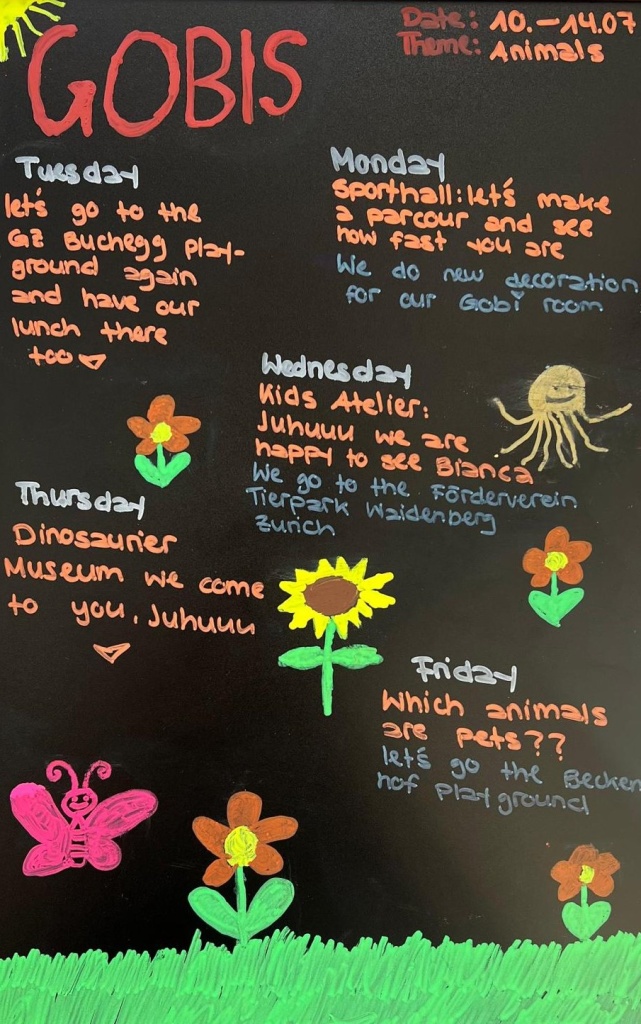 GOBIS
Date: 10.-14.07
Theme: Animals
Monday
Sporthall: let's make
a parcour and see
how fast you are
We do new decoration
for our Gobi room
Tuesday
let's go to the
GZ Buchegg play-
ground again
and have our
lunch there
too
Wednesday
Kids Atelier:
Juhuuu we are
happy to see Bianca
We go to the Förderverein
Tierpark Waidenberg
Zurich
Thursday
Dinosaurier
Museum we come
to you, Juhuuu
Friday
Which animals
are pets??
let's go the Becken
hof Playground